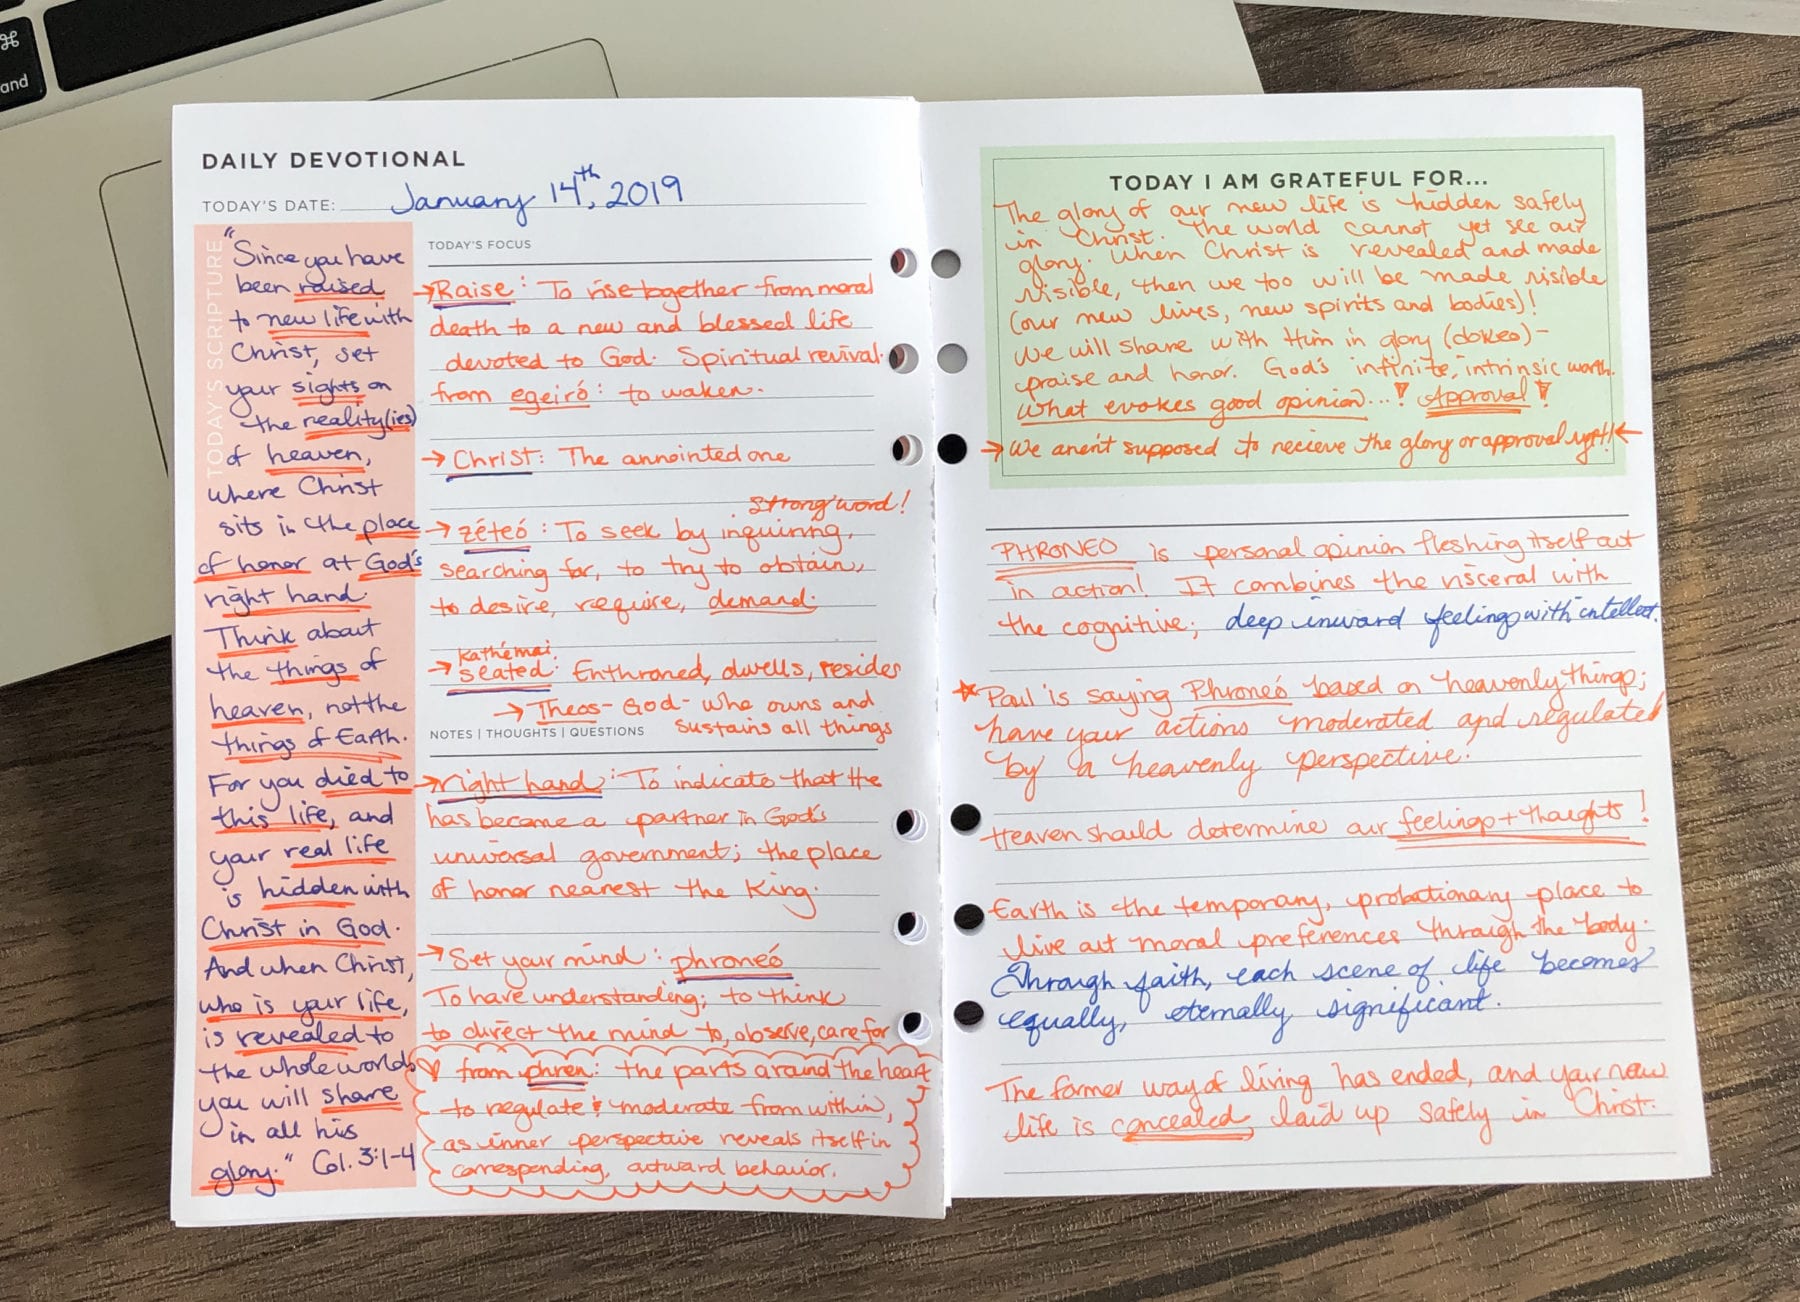 ⌘
and
DAILY DEVOTIONAL
TODAY'S DATE: January 14th, 2019
TODAY'S SCRIPTURE
"Since you have
been raised
to new life with
Christ, set
your sights on
the reality(ies)
of heaven,
where Christ
sits in the place
of honor at God's
right hand.
Think about
the things of
heaven, not the
things of Earth.
For you died to
this life, and
your real life
is hidden with
Christ in God.
And when Christ,
who is your life,
is revealed to
the whole world,
you will share
in all his
glory." Col. 3:1-4
TODAY'S FOCUS
→ Raise: To rise together from moral
death to a new and blessed life
devoted to God. Spiritual revival.
from egeiró: to waken.
→ Christ: The annointed one
strong word!
→ zéteó: To seek by inquiring,
searching for, to try to obtain,
to desire, require, demand.
Kathémai
→ seated: Enthroned, dwells, resides
→ Theos- God- who owns and
sustains all things
NOTES | THOUGHTS | QUESTIONS
→ right hand: To indicate that He
has become a partner in God's
universal government; the place
of honor nearest the King.
→ Set your mind: phroneó
To have understanding; to think
to direct the mind to, observe, care for
♡ from phren: the parts around the heart
to regulate & moderate from within,
as inner perspective reveals itself in
corresponding, outward behavior.
TODAY I AM GRATEFUL FOR...
The glory of our new life is hidden safely
in Christ. The world cannot yet see our
glory. When Christ is revealed and made
visible, then we too will be made visible
(our new lives, new spirits and bodies)!
We will share with Him in glory (dokeo)-
praise and honor. God's infinite, intrinsic worth.
What evokes good opinion...! Approval!
→ We aren't supposed to recieve the glory or approval yet!! ←
PHRONEO is personal opinion fleshing itself out
in action! It combines the visceral with
the cognitive; deep inward feelings with intellect.
★ Paul is saying Phroneó based on heavenly things;
have your actions moderated and regulated
by a heavenly perspective!
Heaven should determine our feelings + thoughts!
Earth is the temporary, probationary place to
live out moral preferences through the body.
Through faith, each scene of life becomes
equally, eternally significant.
The former way of living has ended, and your new
life is concealed, laid up safely in Christ.